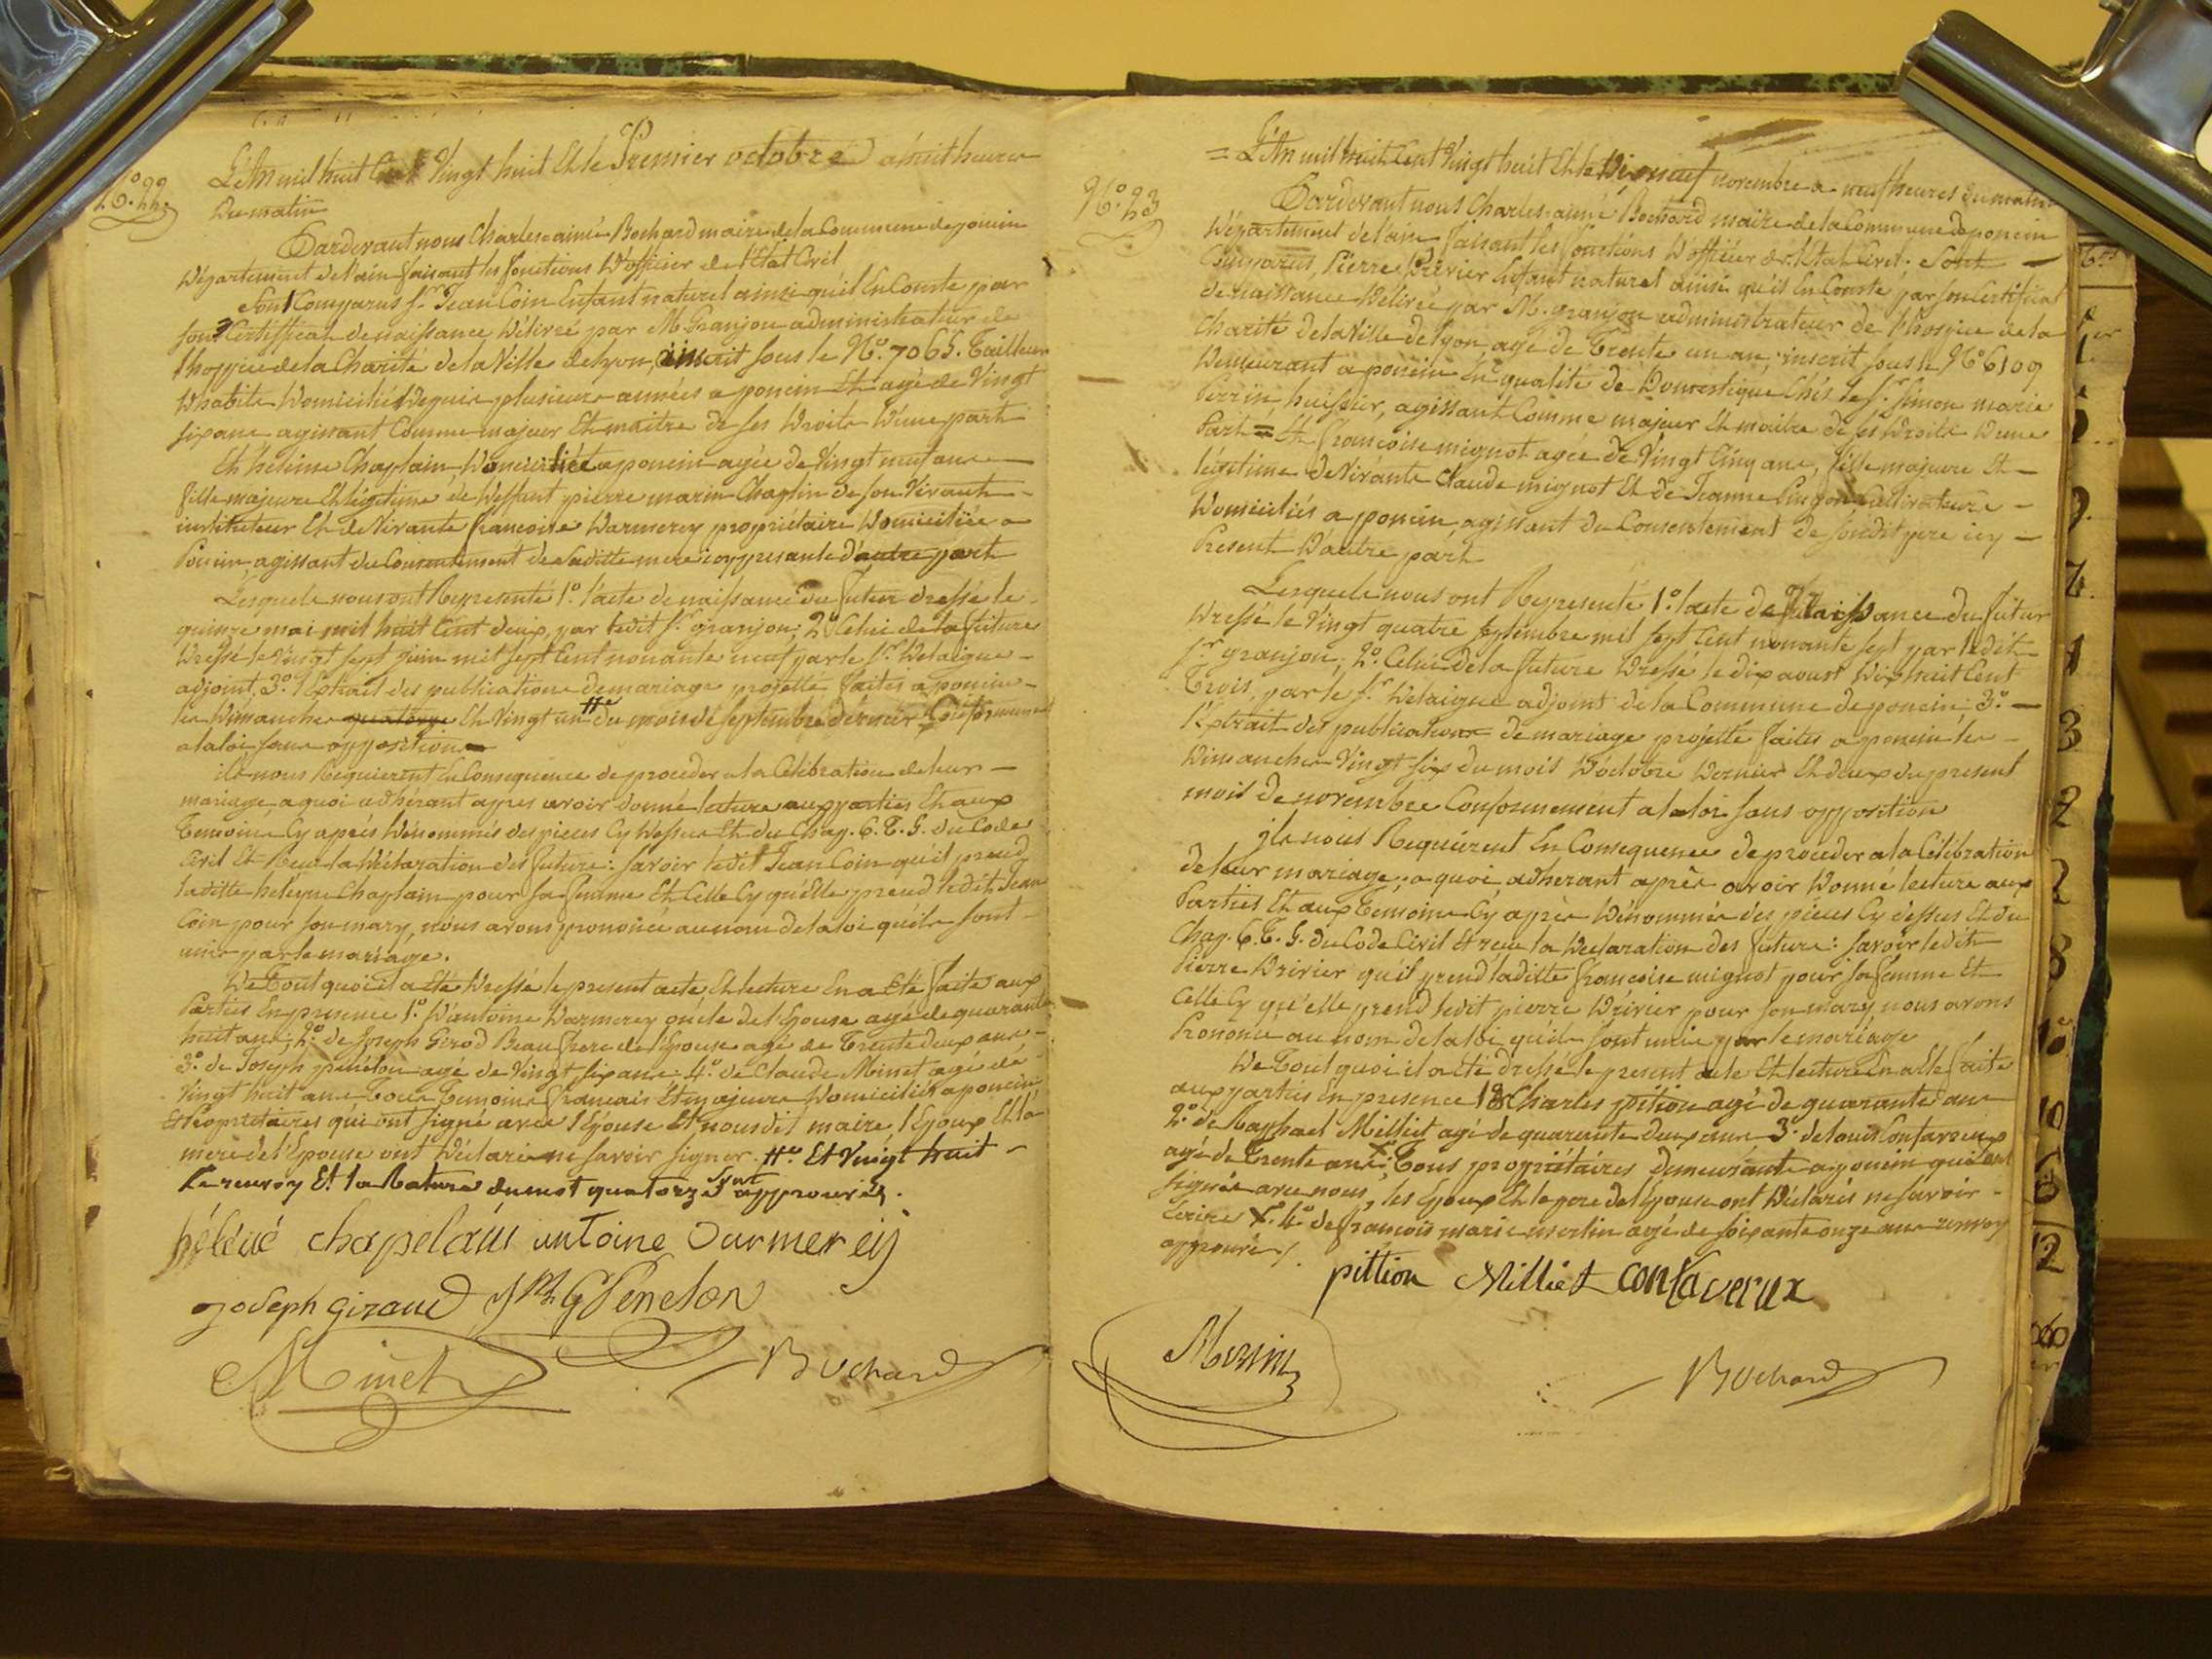 N.° 22.
L'An mil huit Cent Vingt huit Et le Premier octobre a huit heures
Du matin
Pardevant nous Charles aimé Bochard maire de la Commune de poncin
Département de l'ain faisant les fonctions D'officier de l'Etat Civil
Sont Comparus S.r Jean Coin Enfant naturel ainsi qu'il En Conste par
son Certifficat de naissance Délivré par M. Granjon administrateur de
l'hospice de la Charité de la Ville de Lyon, inscrit sous le N.° 7065. Tailleur
D'habits Domicilié Depuis plusieurs années a poncin Et agé de Vingt
six ans agissant Comme majeur Et maitre de ses Droits D'une part
Et héleine Chaplain, Domiciliée a poncin agée de Vingt neuf ans
fille majeure Et légitime de Deffunt pierre marin Chaplin de son Vivant
instituteur Et de Vivante francoise Darmerey propriétaire Domiciliée a
Poncin, agissant du Consentement de Saditte mere icy presante d'autre part
Lesquels nous ont Representé 1.° l'acte de naissance du futur dressé le
quinze mai mil huit Cent deux, par ledit S.r granjon; 2.° Celui de la future
Dressé le Vingt sept juin mil sept Cent nonante neuf par le S.r Delaigue
adjoint, 3.° l'Extrait des publications de mariage projetté faites a poncin
les Dimanches quatorze Et Vingt un du mois de Septembre dernier Conformement
a la loi sans opposition
ils nous Requierent En Consequence de proceder a la Célébration de leur
mariage, a quoi adhérant apres avoir donné lecture aux parties Et aux
Temoins Cy après Dénommés des pieces Cy Dessus Et du Chap. 6. T. 5. du Code
Civil Et Reçu la Déclaration des futurs: savoir ledit Jean Coin qu'il prend
laditte heleine Chaplain pour sa femme Et Celle Cy qu'Elle prend ledit Jean
Coin pour son mary, nous avons prononcé au nom de la loi qu'ils sont
unis par le mariage.
De Tout quoi il a été Dressé le present acte Et lecture En a Eté faite aux
Parties En presence 1.° D'antoine Darmerey oncle de l'Epouse agé de quarante
huit ans; 2.° de Joseph Girod Beau frere de l'Epouse agé de Trente deux ans
3.° de Joseph pénélon agé de Vingt six ans: 4.° de Claude Minet agé de
Vingt huit ans Tous Temoins francais Et majeurs Domiciliés a poncin
Et Propriétaires qui ont signé avec l'Epouse Et nous dit maire, l'Epoux Et la
mere de l'Epouse ont Déclaré ne savoir signer. Et Vingt huit
Le renvoy Et la Rature du mot quatorze sont approuvés.
héléné chapelain antoine Darmerey
joseph giraud J.ph G Penelon
Minet Bochard
N.° 23
= L'An mil huit Cent Vingt huit Et le Dix neuf novembre a neuf heures du matin
Pardevant nous Charles aimé Bochard maire de la Commune de poncin
Département de l'ain faisant les fonctions D'officier de l'Etat Civil. Sont
Comparus, Pierre Drivier Enfant naturel ainsi qu'il En Conste par son Certificat
de naissance Délivré par M. granjon administrateur de l'hospice de la
Charité de la Ville de lyon agé de Trente un an, inscrit sous le N.° 6109
Demeurant a poncin En qualité de Domestique Chés le S.r Simon marie
Perrin huissier, agissant Comme majeur Et maitre de ses Droits D'une
Part = Et francoise mignot agée de Vingt Cinq ans, fille majeure Et
légitime de Vivants Claude mignot Et de Jeanne Pingon Cultivateurs
Domiciliés a poncin agissant du Consentement de sondit pere icy
Present D'autre part
Lesquels nous ont Representé, 1.° l'acte de Naissance du futur
Dressé le Vingt quatre septembre mil sept Cent nonante sept par ledit
S.r granjon; 2.° Celui de la future Dressé le dix aoust Dix huit Cent
Trois, par le S.r Delaigue adjoint de la Commune de poncin 3.°
l'Extrait des publications de mariage projetté faites a poncin les
Dimanches Vingt six du mois D'octobre Dernier Et deux du present
mois de novembre Conformement a la loi sans opposition
ils nous Requierent En Consequence de proceder a la Célébration
de leur mariage; a quoi adherant après avoir Donné lecture aux
Parties Et aux Temoins Cy après Dénommés des pieces Cy dessus Et du
Chap. 6. T. 5. du Code Civil Et reçu la Declaration des futurs: savoir ledit
Pierre Drivier qu'il prend laditte francoise mignot pour sa femme Et
Celle Cy qu'elle prend ledit pierre Drivier pour son mary nous avons
Prononcé au nom de la loi qu'ils sont unis par le mariage
De Tout quoi il a été dressé le present acte Et lecture En a Eté faite
aux parties En presence 1.° de Charles pition agé de quarante ans
2.° de Raphael Milliet agé de quarante deux ans 3.° de louis Contavreux
agé de Trente ans; Tous propriétaires demeurants a poncin qui ont
signés avec nous, les Epoux Et le pere de l'Epouse ont Déclarés ne savoir
Ecrire X. 4.° de francois marie merlin agé de soixante onze ans renvoy
approuvé /.
pittion Milliet contaverux
Bochard